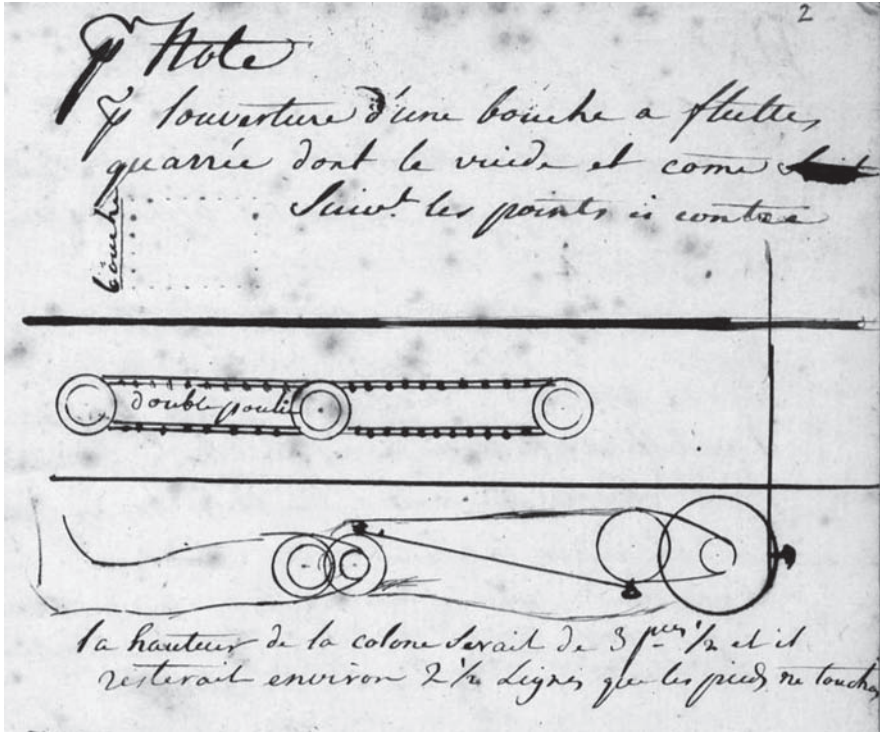 2
pr Note
pr louverture d'une bouche a flutte,
quarrée dont le vuide et come
bouche
Suivt. les points ci contre
double pouli
la hauteur de la colone Serait de 3 pces 1/2 et il
resterait environ 2 1/2 Lignes que les pieds ne touche